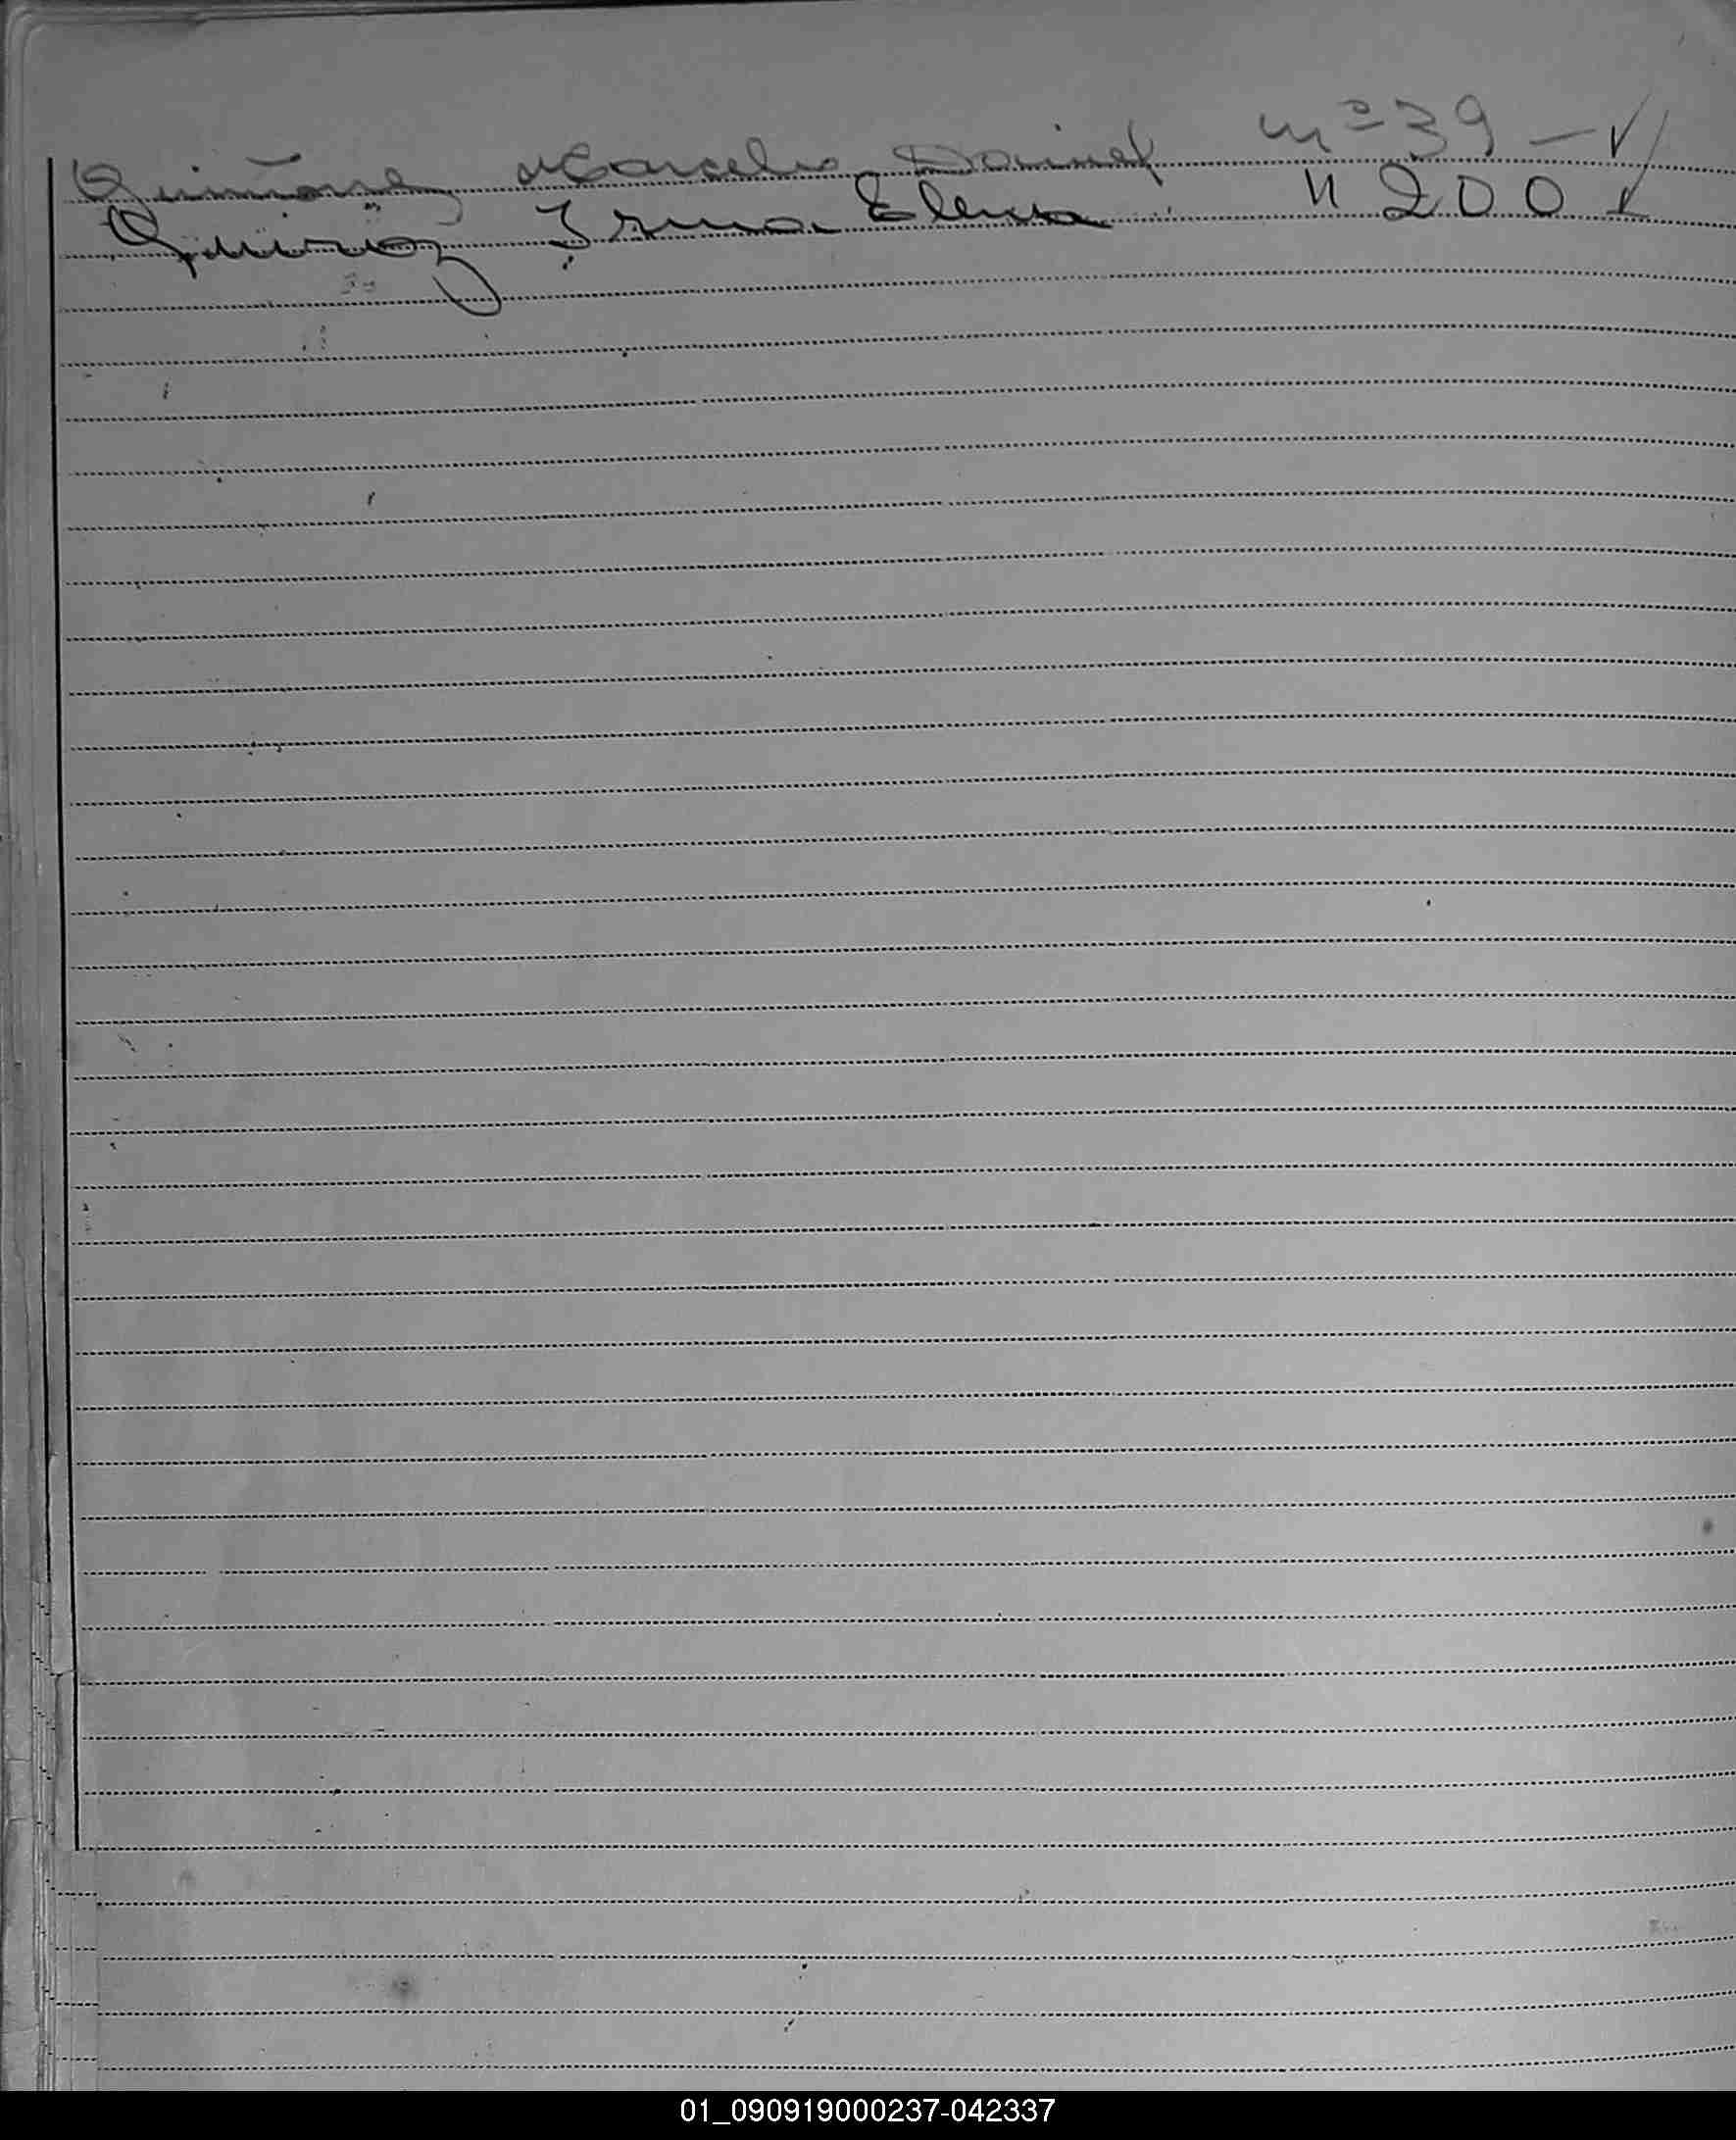 Quiñone Marcelo Daniel nº 39 - ✓
Quiroz Irma Elena " 200 ✓
01_090919000237-042337